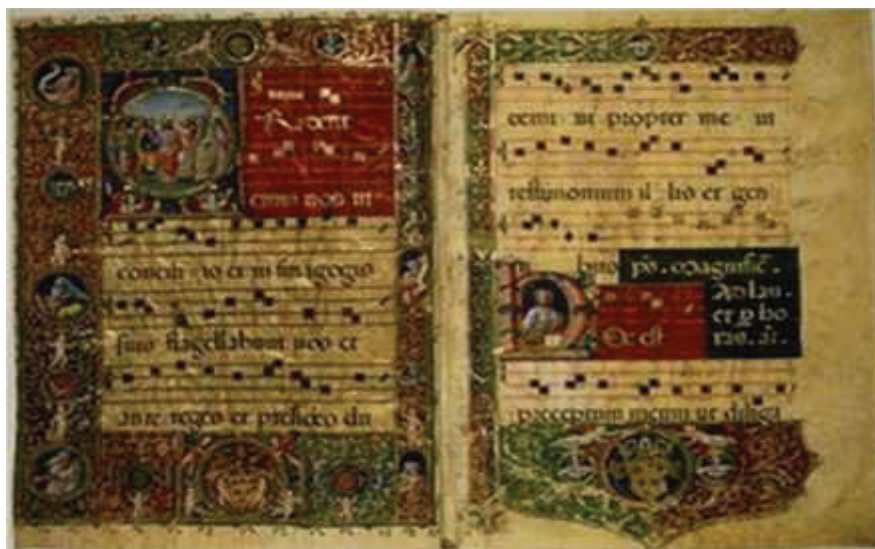 Radent
enim uos in
concilijs et in sinagogis
suis flagellabunt uos et
ante reges et presides du
cemini propter me in
testimonium illis et gen
bus ps. magnific.
Ad lau.
et p ho
Oc est ras.
preceptum meum ut diliga